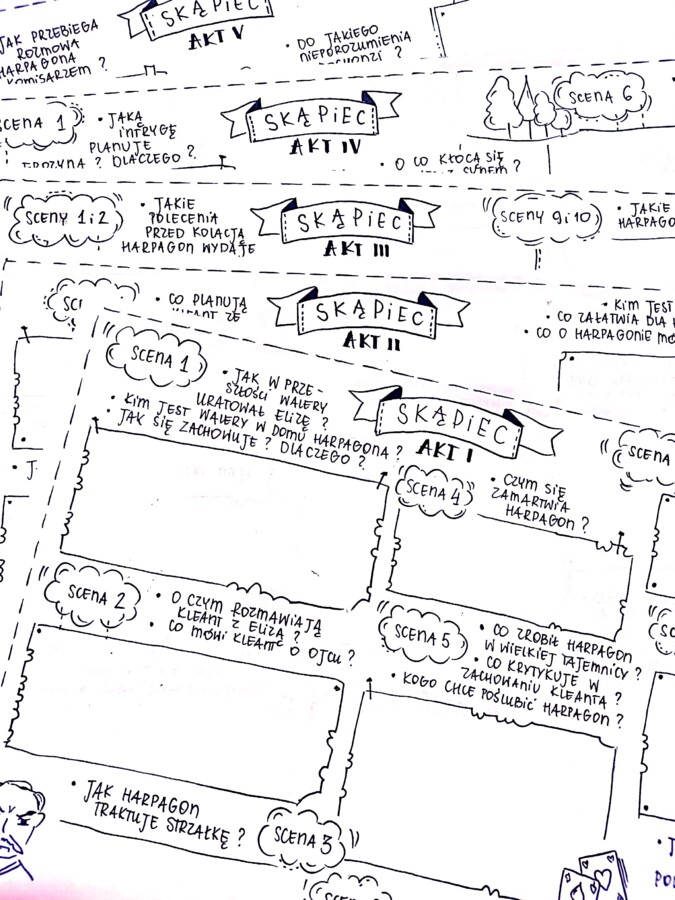 JAK PRZEBIEGA
ROZMOWA
HARPAGONA
KOMISARZEM ?
SKĄPIEC
AKT V
• DO JAKIEGO
NIEPOROZUMIENIA
SCENA 1
• JAKĄ
INTRYGĘ
PLANUJE
FROZYNA ? DLACZEGO ?
SKĄPIEC
AKT IV
SCENA 6
• O CO KŁÓCĄ SIĘ
SCENY 1 i 2
• JAKIE
POLECENIA
PRZED KOLACJĄ
HARPAGON WYDAJE
SKĄPIEC
AKT III
SCENY 9 i 10
• JAKIE
HARPAGO
• CO PLANUJĄ
KLEANT ZE
SKĄPIEC
AKT II
• KIM JEST
• CO ZAŁATWIA DLA
• CO O HARPAGONIE
SCENA 1
• JAK W PRZE-
SZŁOŚCI WALERY
URATOWAŁ ELIZĘ ?
• KIM JEST WALERY W DOMU HARPAGONA ?
• JAK SIĘ ZACHOWUJE ? DLACZEGO ?
SKĄPIEC
AKT I
SCENA
SCENA 4
• CZYM SIĘ
ZAMARTWIA
HARPAGON ?
SCENA 2
• O CZYM ROZMAWIAJĄ
KLEANT Z ELIZĄ ?
• CO MÓWI KLEANT O OJCU ?
SCENA 5
• CO ZROBIŁ HARPAGON
W WIELKIEJ TAJEMNICY ?
• CO KRYTYKUJE W
ZACHOWANIU KLEANTA ?
• KOGO CHCE POŚLUBIĆ HARPAGON ?
• JAK HARPAGON
TRAKTUJE STRZAŁKĘ ?
SCENA 3